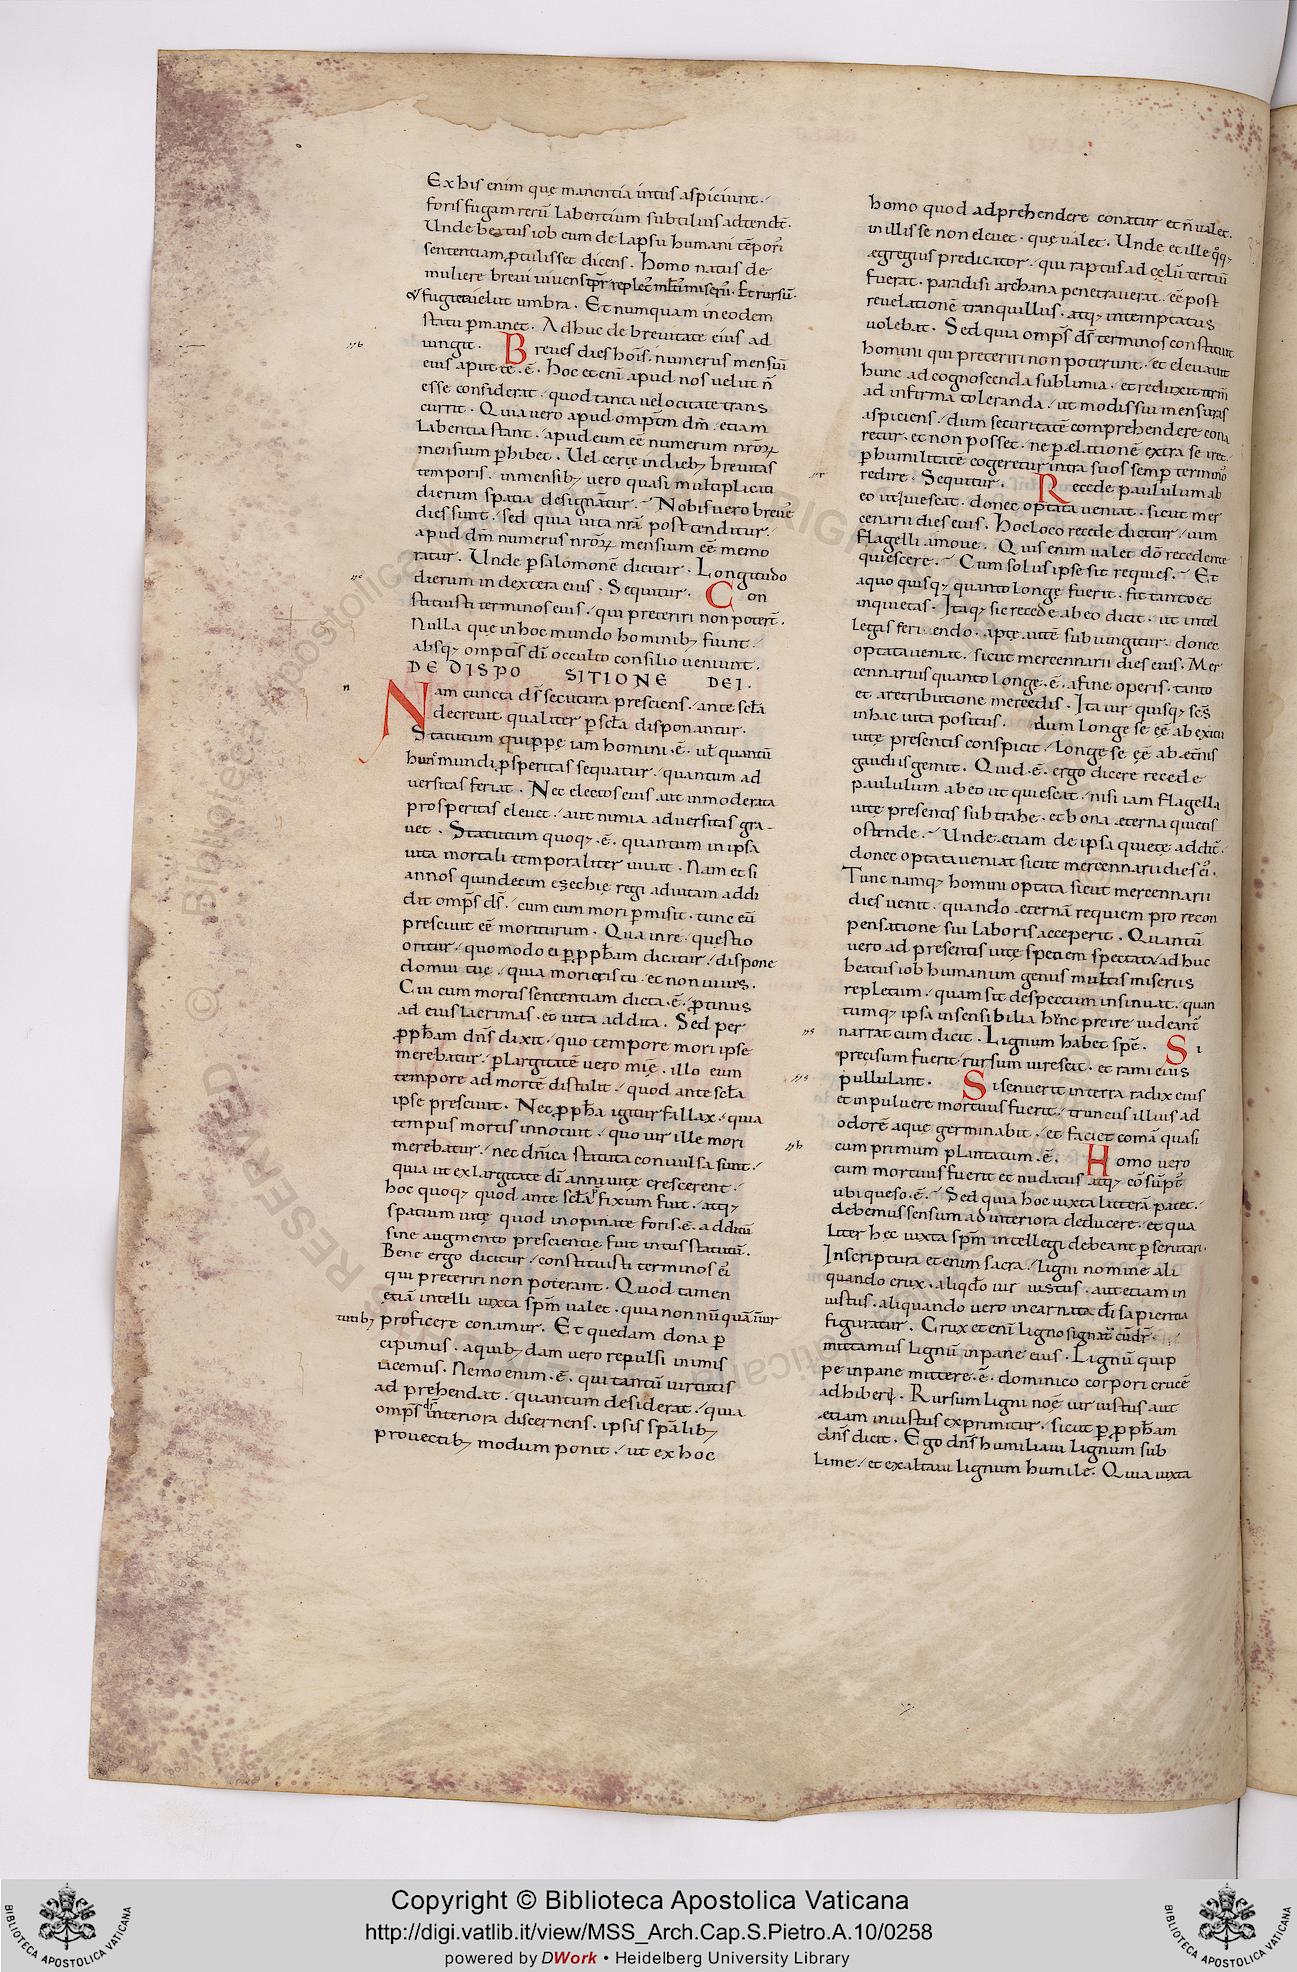 Ex his enim quę manentia intus aspiciunt.
foris fugam rerū labentium subtilius adtendt̄.
Unde beatus iob cum de lapsu humani tēporis
sententiam ꝓtulisset dicens. Homo natus de
muliere brevi vivens tp̄r repletꝰ mltis miseriis. Et rursū.
fugit velut umbra. Et numquam in eodem
statu ꝑmanet. Adhuc de brevitate eius ad
iungit. Breves dies hoīs. numerus mensiū
eius aput te .ē. Hoc etenī apud nos velut n̄
esse considerat. quod tanta velocitate trans
currit. Quia vero apud omp̄tm dm̄. etiam
labentia stant. apud eum eē numerum nr̄oꝝ
mensium ꝑhibet. Vel certe in dieb; brevitas
temporis. in mensib; vero quasi multiplicati
dierum spatia designāntur. Nobis vero breves
dies sunt. sed quia vita nr̄a post tenditur.
apud dm̄ numerus nr̄oꝝ mensium eē memo
ratur. Unde ꝑ salomonē dicitur. Longitudo
dierum in dextera eius. Sequitur. Con
stituisti terminos eius. qui preteriri non potert̄.
Nulla que in hoc mundo hominib; fiunt.
absq; omptīs dī occulto consilio veniunt.
DE DISPOSITIONE DEI.
Nam cuncta ds̄ secutura presciens. ante scl̄a
decrevit qualiter ꝑ scl̄a disponantur.
Statutum quippe iam homini .ē. vl̄ quantū
hunc mundi ꝓsperitas sequatur. quantum ad
versitas feriat. Nec electos eius aut inmoderata
prosperitas elevet. aut nimia adversitas gra-
vet. Statutum quoq; .ē. quantum in ipsa
vita mortali temporaliter vivat. Nam etsi
annos quindecim ezechię regi ad vitam addi
dit omp̄s ds̄. cum eum mori ꝑmisit. tunc eū
prescivit eē moriturum. Qua in re. questio
oritur. quomodo ei ꝑ ꝓph̄am dicatur. dispone
domui tue. quia morieris tu. et non vives.
Cui cum mortis sententiam dicta .ē. ꝓtinus
ad eius lacrimas. et vita addita. Sed per
ꝓph̄am dn̄s dixit. quo tempore mori ipse
merebatur. ꝑ largitatē vero mīę. illo eum
tempore ad mortē distulit. quod ante scl̄a
ipse prescivit. Nec ꝓph̄a igitur fallax. quia
tempus mortis innotuit. quo vir ille mori
merebatur. nec dn̄ica statuta convulsa sunt.
quia ut ex largitate dī anni vitę crescerent.
hoc quoq; quod ante scl̄a fixum fuit. atq;
spatium vitę quod inopinate foris .ē. additū
sine augmento prescientię fuit intus statutū.
Bene ergo dicitur. constituisti terminos ei
qui preteriri non poterant. Quod tamen
etiā intelli iuxta spm̄ valet. quia non nūquā in vir
tutib; proficere conamur. Et quedam dona ꝑ
cipimus. a quib;dam vero repulsi in imis
iacemus. Nemo enim .ē. qui tantū virtutis
adprehendat. quantum desiderat. quia
omp̄s ds̄ interiora discernens. ipsis spālib;
provectib; modum ponit. ut ex hoc
homo quod adprehendere conatur et n̄ valet.
in illis se non elevet. quę valet. Unde et ille qq;
ęgregius predicator. qui raptus ad cęlū tertiū
fuerat. paradisi archana penetraverat. eē post
revelationē tranquillus. atq; intemptatus
volebat. Sed quia omp̄s ds̄ terminos constituit
homini qui preteriri non poterunt. et elevavit
hunc ad cognoscenda sublimia. et reduxit iterū
ad infirma toleranda. ut modis sui mensuras
aspiciens. dum securitatē comprehendere cona
retur. et non posset. ne ꝑ elationē extra se iret.
ꝑ humilitatē cogeretur intra suos semꝑ terminos
redire. Sequitur. Recede paululum ab
eo ut quiescat. donec optata veniat. sicut mer
cenarii dies eius. Hoc loco recede dicitur. vim
flagelli amove. Quis enim valet dō recedente
quiescere. Cum solus ipse sit requies. Et
a quo quisq; quanto longe fuerit. fit tanto et
inquietas. Itaq; sic recede ab eo dicit. ut intel
legas feriendo. apte autē subiungitur. donec
optata veniat. sicut mercennarii dies eius. Mer
cennarius quanto longe .ē. a fine operis. tanto
et a retributione mercedis. Ita vir quisq; scs̄
in hac vita positus. dum longe se eē ab exitu
vitę presentis conspicit. longe se eē ab eternis
gaudiis gemit. Quid .ē. ergo dicere recede
paululum ab eo ut quiescat. nisi iam flagella
vite presentis subtrahe. et bona ęterna quietis
ostende. Unde etiam de ipsa quiete addit̄.
donec optata veniat sicut mercennarii dies ei.
Tunc namq; homini optata sicut mercennarii
dies venit. quando ęternā requiem pro recon
pensatione sui laboris acceperit. Quantū
vero ad presentis vitę speciem spectata adhuc
beatus iob humanum genus multis miserus
repletum. quam sit despectum insinuat. quan
tumq; ipsa insensibilia hunc preire videant̄
narrat cum dicit. Lignum habet spē. Si
precisum fuerit. rursum virescit. et rami eius
pullulant. Si senuerit in terra radix eius
et in pulvere mortuus fuerit. truncus illius ad
odorē aque germinabit. et faciet comā quasi
cum primum plantatum .ē. Homo vero
cum mortuus fuerit et nudatus atq; cōsūpt'
ubi queso .ē. Sed quia hoc iuxta litterā patet.
debemus sensum ad interiora deducere. et qua
liter hec iuxta spm̄ intellegi debeant ꝑscrutari.
In scriptura etenim sacra. ligni nomine ali
quando crux. aliqdo vir iustus. aut etiam in
iustus. aliquando vero incarnata dī sapientia
figuratur. Crux etenī ligno signat' cū dr̄.
mittamus lignū in pane eius. Lignū quip
pe in pane mittere .ē. dominico corpori crucē
adhibere. Rursum ligni noē vir iustus aut
etiam iniustus exprimitur. sicut ꝑ ꝓph̄am
dn̄s dicit. Ego dn̄s humiliavi lignum sub
lime. et exaltavi lignum humile. Quia iuxta
Copyright © Biblioteca Apostolica Vaticana
http://digi.vatlib.it/view/MSS_Arch.Cap.S.Pietro.A.10/0258
powered by DWork • Heidelberg University Library